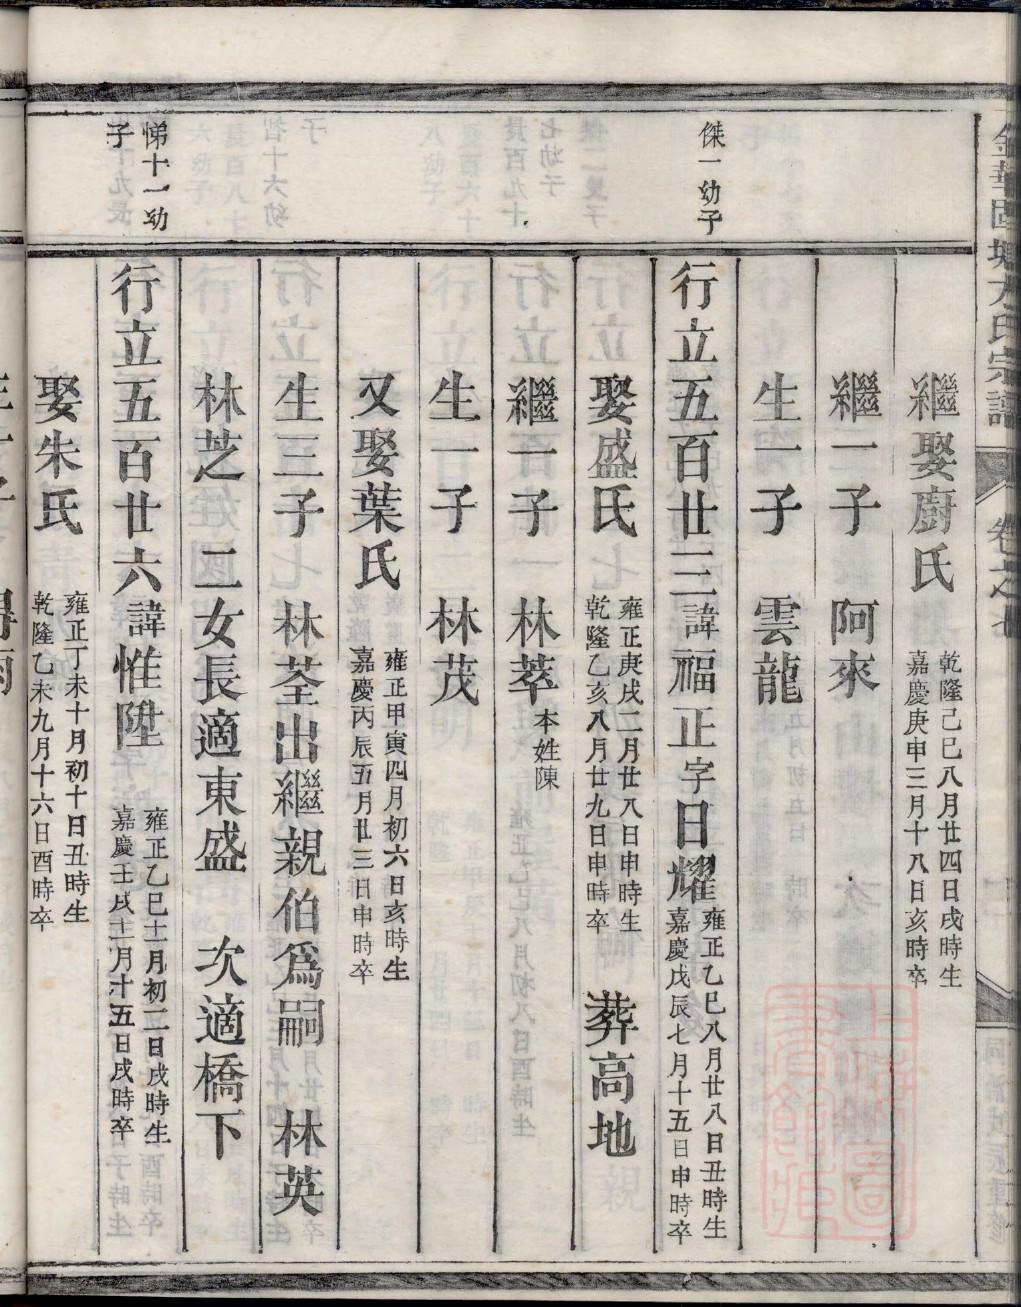 金華固塘方氏宗譜 卷之七
繼娶廚氏 乾隆己巳八月廿四日戌時生 嘉慶庚申三月十八日亥時卒
繼一子 阿來
生一子 雲龍
傑一幼子
行立五百廿三 諱福正 字日耀 雍正乙巳八月廿八日丑時生 嘉慶戊辰七月十五日申時卒
娶盛氏 雍正庚戌二月廿八日申時生 乾隆乙亥八月廿九日申時卒 葬高地
繼一子 林萃 本姓陳
生一子 林茂
又娶葉氏 雍正甲寅四月初六日亥時生 嘉慶丙辰五月廿三日申時卒
生三子 林荃出繼親伯爲嗣 林英
林芝 二女長適東盛 次適橋下
悌十一幼子
行立五百廿六 諱惟陞 雍正乙巳十一月初二日戌時生 嘉慶壬戌十二月十五日戌時卒
娶朱氏 雍正丁未十月初十日丑時生 乾隆乙未九月十六日酉時卒